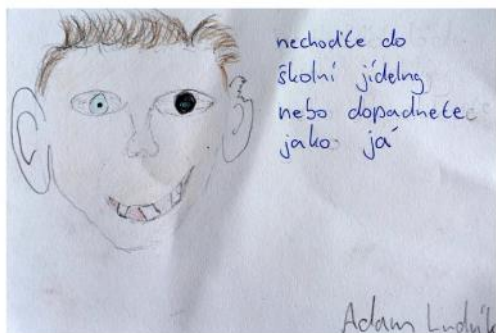 nechoďte do
školní jídelny
nebo dopadnete
jako já
Adam Ludvík